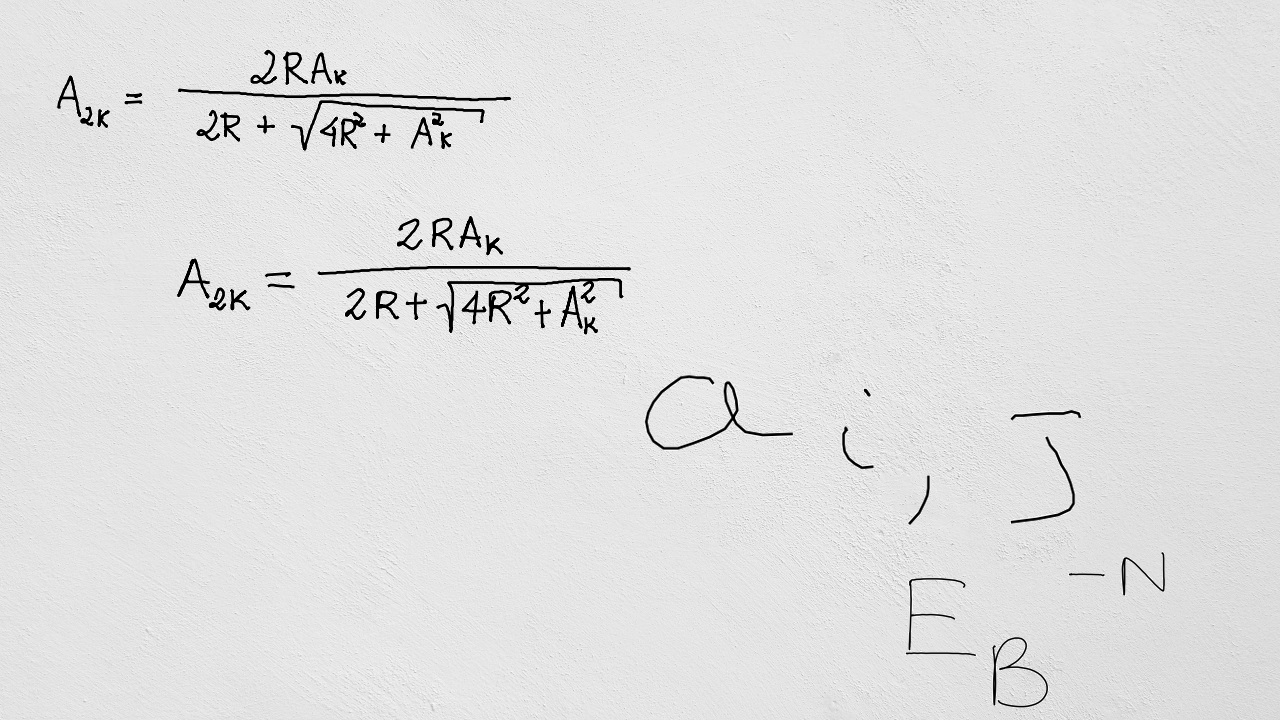 A_{2K} = \frac{2RA_K}{2R + \sqrt{4R^2 + A_K^2}}
A_{2K} = \frac{2RA_K}{2R + \sqrt{4R^2 + A_K^2}}
a i, J
E_B^{-N}